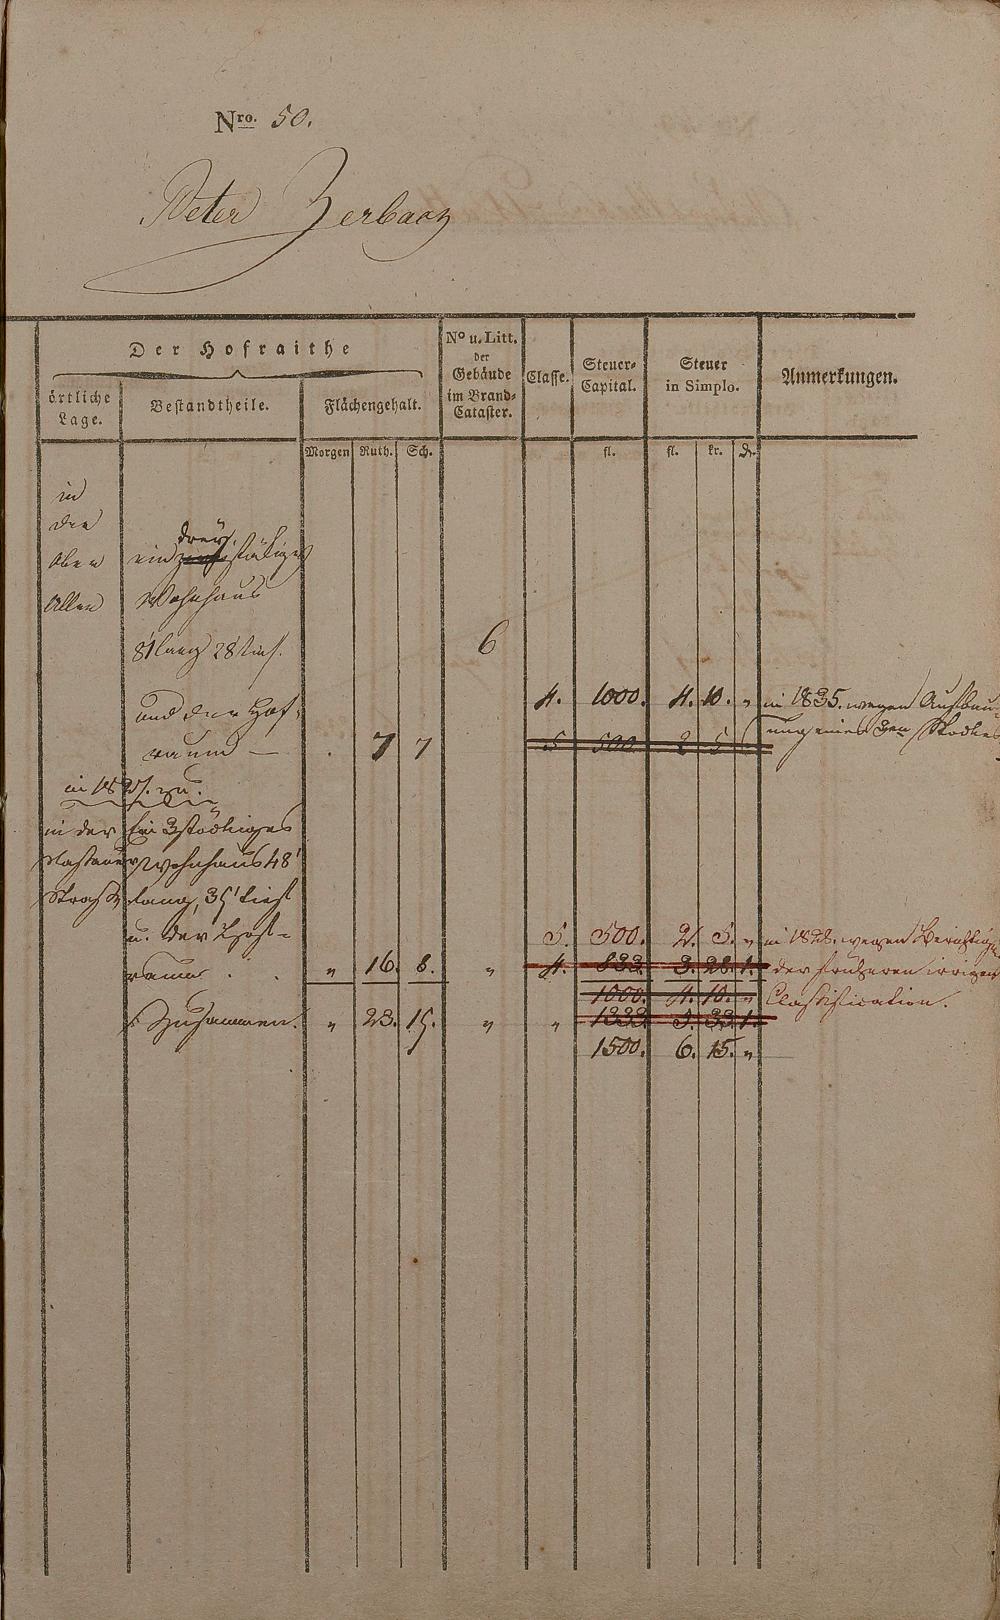 Nro. 50.
Peter Zerbach
Der Hofraithe
örtliche Lage.
Bestandtheile.
Flächengehalt.
No u. Litt. der Gebäude im Brand-Cataster.
Classe.
Steuer-Capital.
Steuer in Simplo.
Anmerkungen.
Morgen Ruth. Sch. fl. fl. kr. d.
in
der
drey
oben ein stökiges
Allee Wohnhaus
6
81' lang 28' tief.
4. 1000. 4. 10. " in 1835. wegen Aufbau-
und der Hof-
ung eines 3ten Stockes
raum — 7 7 5 500 2 5
in 1827. zu.
in der Ein 3stöckiges
Nassauer Wohnhaus 48'
Straße lang, 35' tief
u. der Hof-
5. 500. 2. 5. " in 1828. wegen Berichtigung
raum . . " 16. 8. " 4. 833. 3. 28. 1. der früheren irrigen
1000. 4. 10. " Classification.
Zusammen. " 23. 15. " " 1333. 5. 33. 1.
1500. 6. 15. "